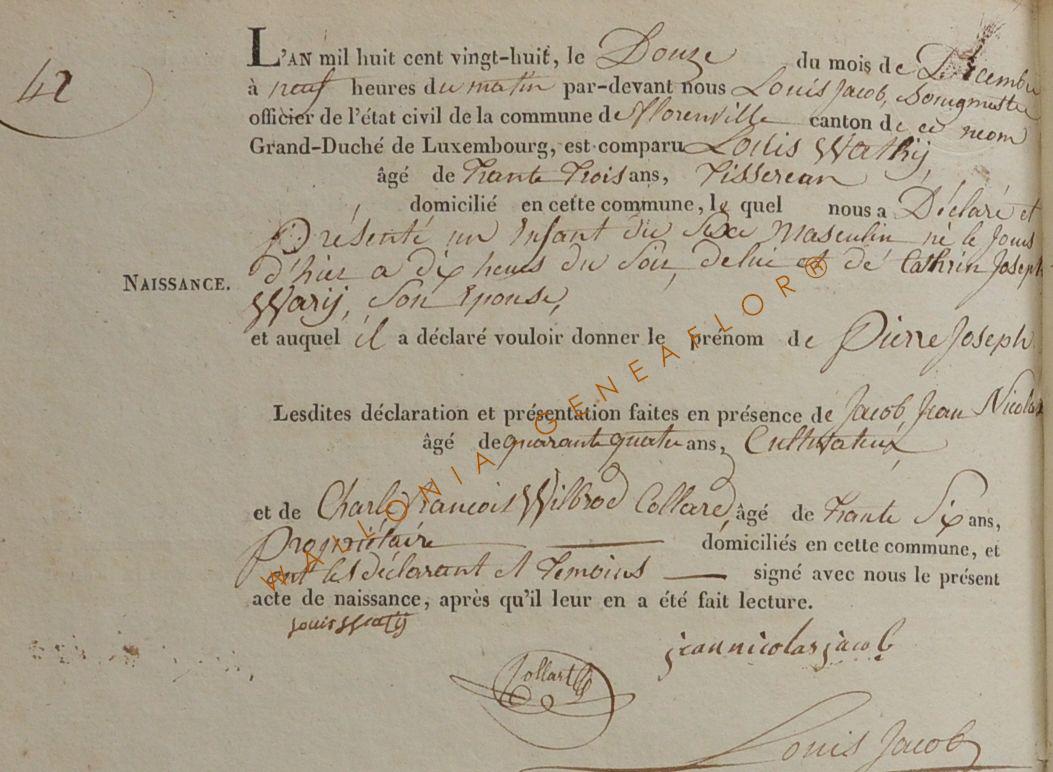 42
L'AN mil huit cent vingt-huit, le Douze du mois de Décembre
à neuf heures du matin par-devant nous Louis Jacob, Bourgmestre
officier de l'état civil de la commune de Florenville canton de ce nom
Grand-Duché de Luxembourg, est comparu Louis Wathÿ,
âgé de Trante Trois ans, Tisserean
domicilié en cette commune, le quel nous a Déclaré et
Présenté un Enfant du Sexe Masculin né le Jours
d'hier a dix heurs du Soir, de lui et de Cathrin Joseph
NAISSANCE.
Warÿ, Son Epouse,
et auquel il a déclaré vouloir donner le prénom de Pierre Joseph
Lesdites déclaration et présentation faites en présence de Jacob Jean Nicolas
âgé de quarante quatre ans, Cultivateur,
et de Charle Francois Wilbrod Collard, âgé de Trante Six ans,
Propriétaire domiciliés en cette commune, et
ont les déclarant et Temoins signé avec nous le présent
acte de naissance, après qu'il leur en a été fait lecture.
louis Watÿ
jean nicolas jacob
Collart
Louis Jacob
WALLONIA GENEAFLOR®